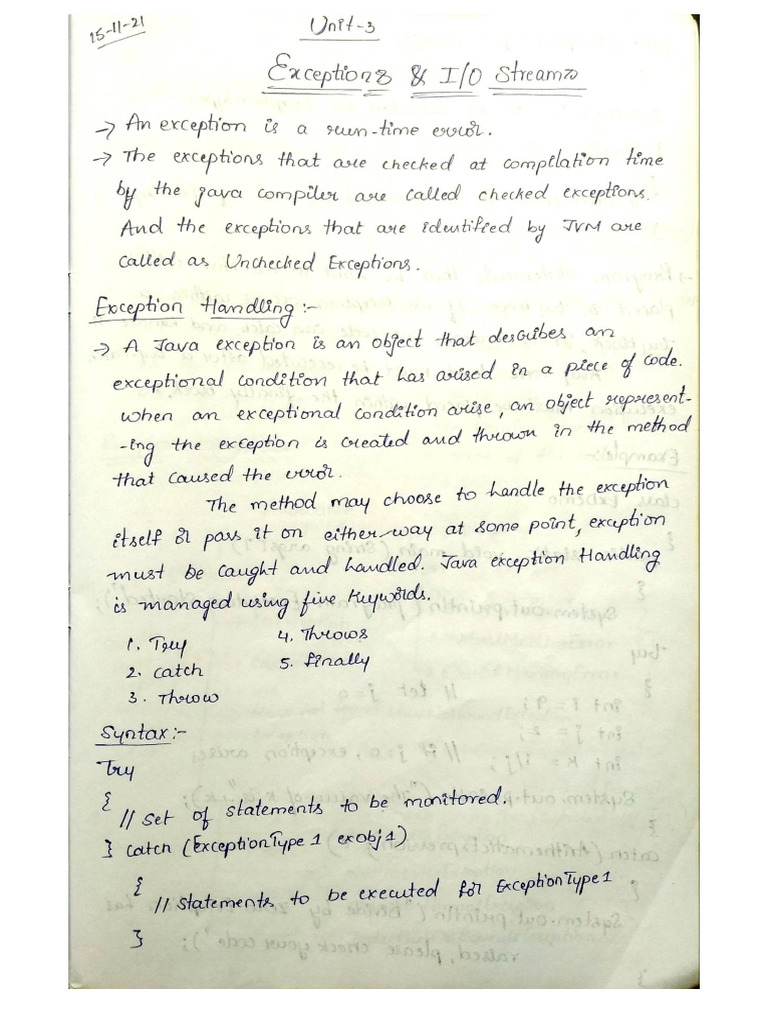 15-11-21
Unit-3
Exceptions & I/O Streams
→ An exception is a run-time error.
→ The exceptions that are checked at compilation time
by the java compiler are called checked exceptions.
And the exceptions that are identified by JVM are
called as Unchecked Exceptions.
Exception Handling :-
→ A Java exception is an object that describes an
exceptional condition that has arised in a piece of code.
when an exceptional condition arise, an object represent-
-ing the exception is created and thrown in the method
that caused the error.
The method may choose to handle the exception
itself or pass it on either-way at some point, exception
must be caught and handled. Java exception Handling
is managed using five keywords.
1. Try
4. Throws
2. catch
5. finally
3. Throw
Syntax :-
Try
{
// Set of statements to be monitored.
} catch (ExceptionType 1 exobj 1)
{
// Statements to be executed for ExceptionType 1
}